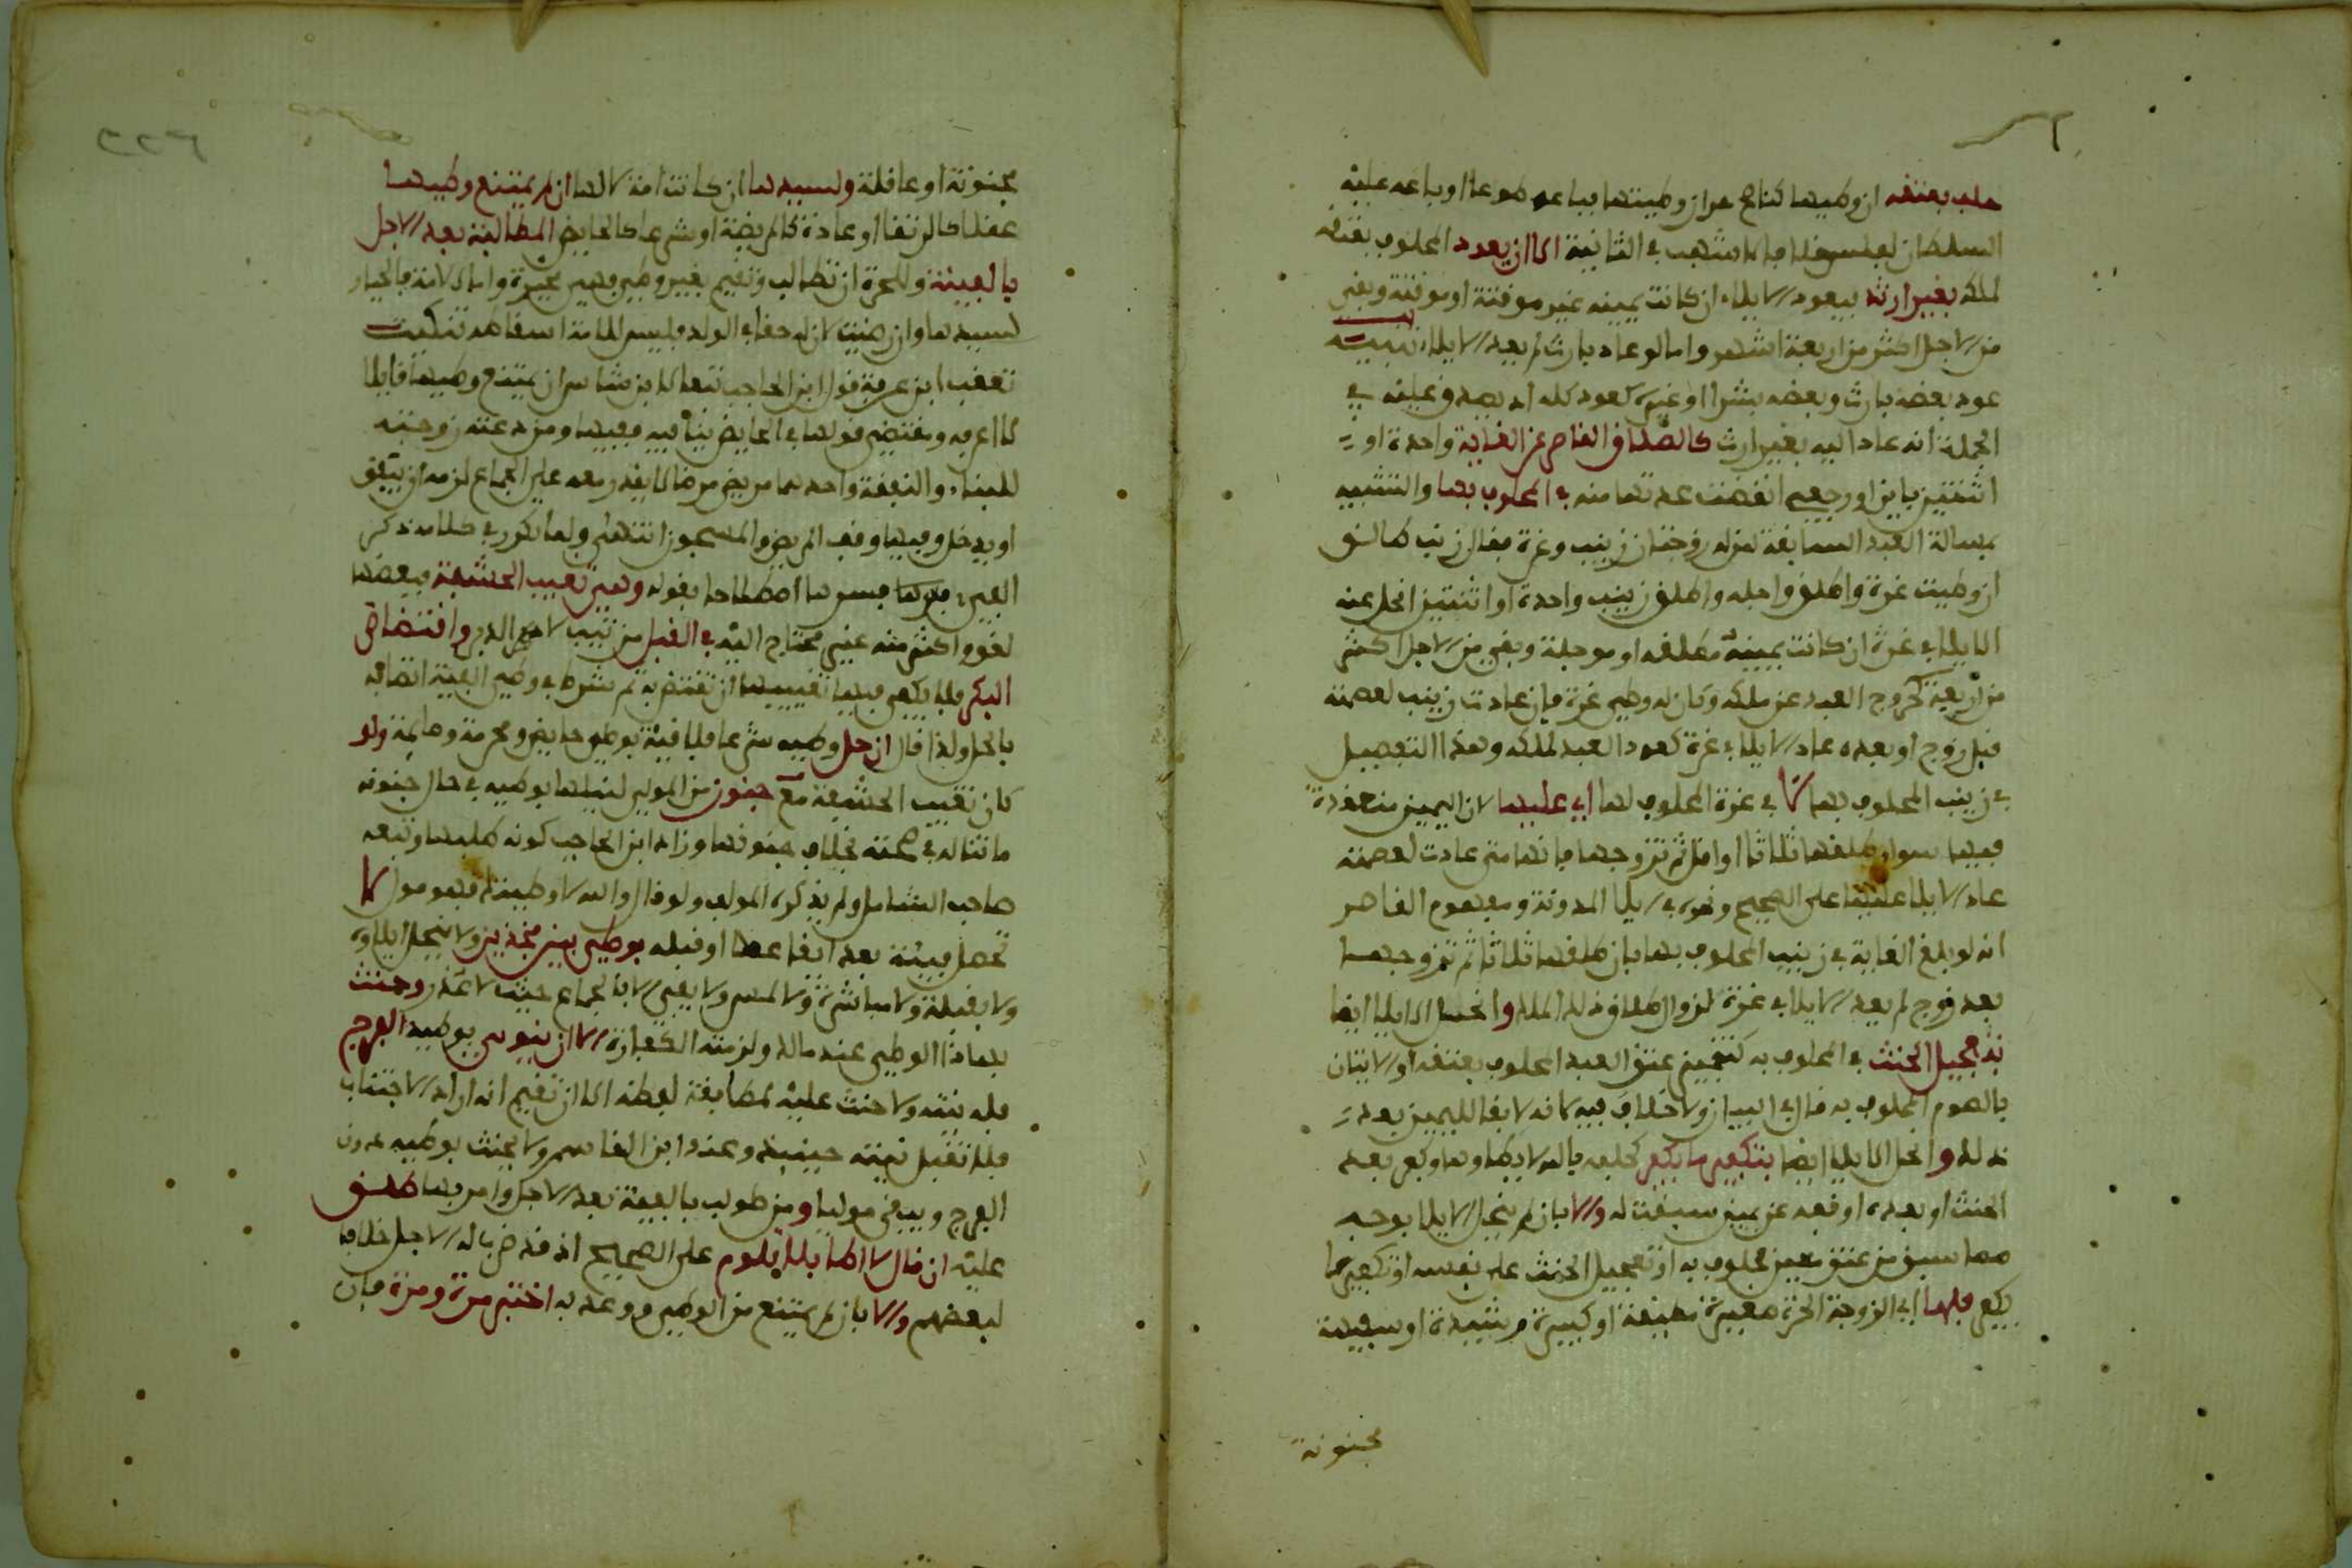 حلف بعتقه ان وطيها كناجح حر ان وطيتها فباعه طوعا او باعه عليه
السلطان لفلسه خلافا لاشهب في الثانية الا ان يعود المحلوف بعتقه
لملكه بغير ارث فيعود الايلاء ان كانت يمينه غير موقتة او موقتة وبقي
من الاجل اكثر من اربعة اشهر واما لو عاد بارث لم يعد الايلاء تنبيه
عود بعضه بارث وبعضه بشرا او غيره كعود كله اذ يصدق عليه في
الجملة انه عاد اليه بغير ارث كالطلاق القاصر عن الغاية واحدة او
اثنتين باين او رجعي انقضت عدتها منه في المحلوف بها والتشبيه
بمسالة العبد السابقة فمن له زوجتان زينب وعزة فقال زينب طالق
ان وطيت عزة واطلق او اجله وطلق زينب واحدة او اثنتين انحل عنه
الايلا في عزة ان كانت يمينه مطلقه او موجلة وبقي من الاجل اكثر
من اربعة كخروج العبد عن ملكه وكان له وطي عزة فان عادت زينب لعصمته
قبل زوج او بعده عاد الايلا في عزة كعود العبد لملكه وهذا التفصيل
في زينب المحلوف بها لا في عزة المحلوف لها اي عليها لان اليمين منعقدة
فيها سوا طلقها ثلاثا او اقل ثم تزوجها فانها متى عادت لعصمته
عاد الايلا عليها على الصحيح ونحوه في ايلا المدونة ومفهوم القاصر
انه لو بلغ الغاية في زينب المحلوف بها بان طلقها ثلاثا ثم تزوجها
بعد زوج لم يعد الايلا في عزة لزوال طلاق ذلك الملك وانحل الايلا ايضا
بتعجيل الحنث في المحلوف به كتنجيز عتق العبد المحلوف بعتقه او الاتيان
بالصوم المحلوف به قال في البيان ولا خلاف فيه لانه لا بقا لليمين بعد
ذلك وانحل الايلا ايضا بتكفير ما يكفر كحلفه بالله لا يطاها وكفر بعد
الحنث او بعده او قبعه عن يمين سبقت له والا بان لم ينحل الايلا بوجه
مما سبق من عتق معين محلوف به او تعجيل الحنث على نفسه او تكفير ما
يكفر فلها اي الزوجة الحرة صغيرة مطيقة او كبيرة رشيدة او سفيهة
مجنونة
مجنونة او عاقلة ولسيدها ان كانت امة لا لها ان لم يمتنع وطيها
عقلا كالرتقا او عادة كالمريضة او شرعا كالحايض المطالبة بعد الاجل
بالفيئة وللحرة ان تطالب وتقيم بغير وطي فهي مخيرة واما الامة فالخيار
لسيدها وان رضيت لان له حقا في الولد فليس للامة اسقاطه تنكيت
تعقب ابن عرفة قول ابن الحاجب تبعا لابن شاس ان يمتنع وطيها فايلا
لا اعرفه ومقتضى قولها في الحايض ينافيه ففيها ومن دعته زوجته
للبناء والنفقة واحدهما مريض مرضا لا يقدر معه على الجماع لزمه ان ينفق
او يدخل وفيها وقف المريض والمسجون انتهى ولما تكرر في كلامه ذكر
الفيئة فسرها اصطلاحا بقوله وهي تغييب الحشفة فبعضها
لغو واكثر منه غير محتاج اليه في القبل من ثيب لا في الدبر وافتضاض
البكر فلا يكفي فيها تغييبها ان تفتض به ثم شرط في وطي الفيئة اتصافه
بالحل ولذا قال ان حل وطيه شرعا فلا فيئة بوطي حايض ومحرمة وصايمة ولو
كان تغييب الحشفة مع جنون من المولي لنيلها بوطيه في حال جنونه
ما تناله في صحته بخلاف جنونها وزاد ابن الحاجب كونه طلبها وتبعه
صاحب الشامل ولم يذكره المولف ولو قال والله لا وطيتك فهو مول لا
تحصل فيئة بعد ايقاعها او قبله بوطي بين فخذين ولا ينحل ايلاوه
ولا بقبلة ولا مباشرة ولا لمس ولا يفي الا بالجماع حيث لا عذر وحنث
بهاذا الوطي عند مالك ولزمته الكفارة الا ان ينوي بوطيه الفرج
فله نيته ولا حنث عليه لمطابقة لفظه الا ان تقيم انه اراد الاجتناب
فلا تقبل نيته حينيذ وعند ابن القاسم ولا يحنث بوطيه دون
الفرج ويبقى موليا ومن طولب بالفيئة بعد الاجل وامر بها طلق
عليه ان قال لا اطا بلا تلوم على الصحيح اذ قد ضرب له الاجل خلافا
لبعضهم والا بان لم يمتنع من الوطي ووعد به اختبر مرة ومرة فان